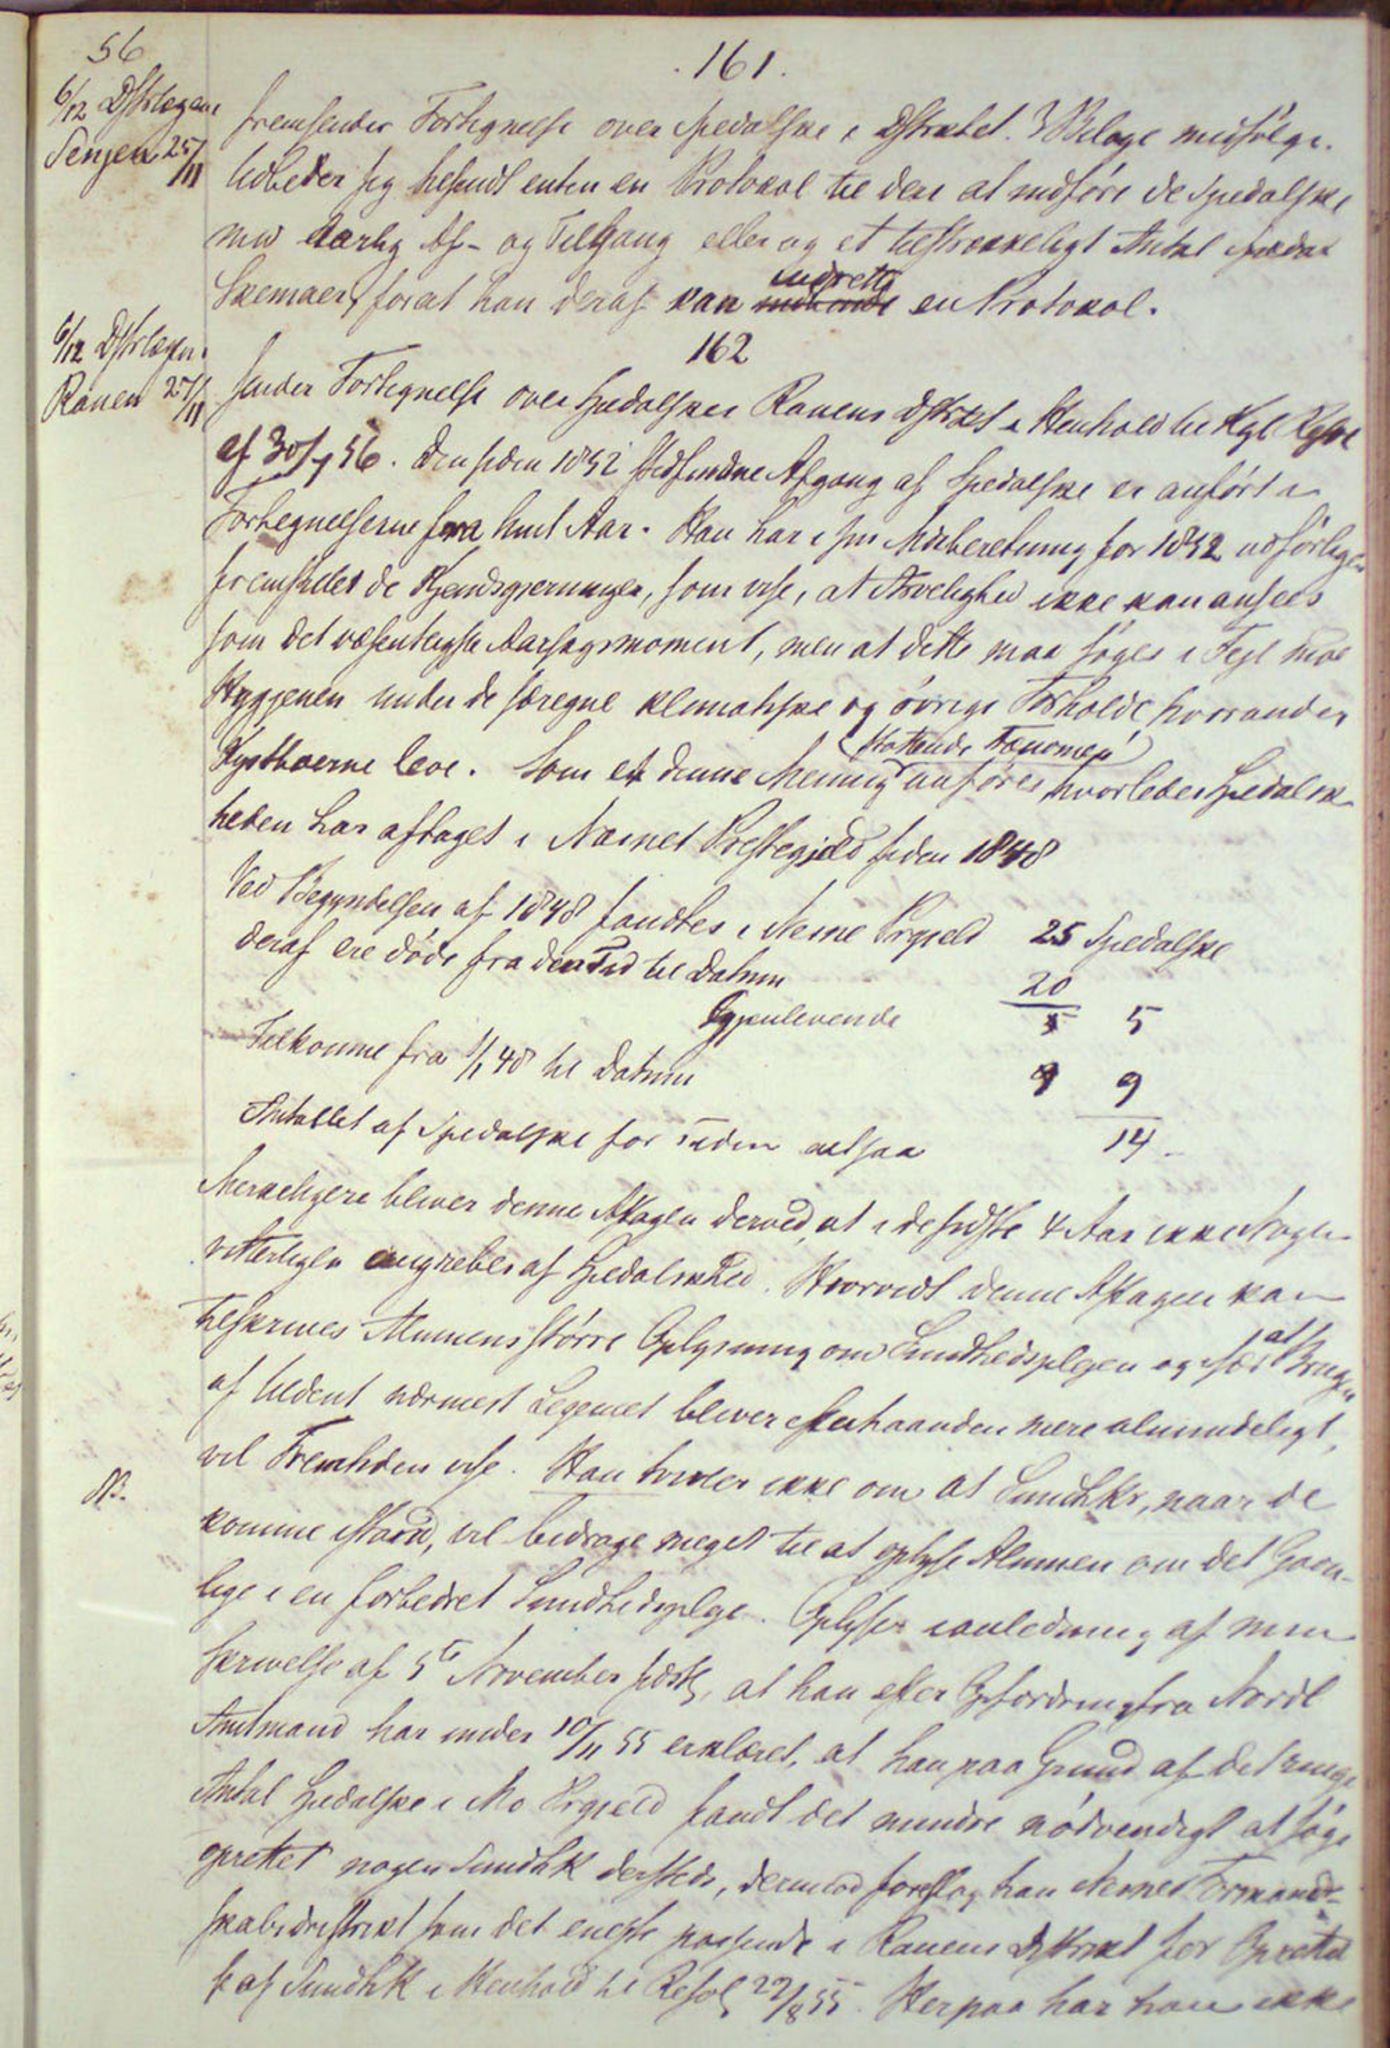 56
161.
6/12 Dstrlægen
Senjen 25/11
fremsender Fortegnelse over spedalske i Dstriktet. 3 Bilage medfølge.
Udbeder sig tilsendt enten en Protokol til deri at indføre de spedalske
med aarlig Af- og Tilgang eller og et tilstrækkeligt Antal
Skemaer, forat han deraf kan indrette en Protokol.
162
6/12 Dstrlægen
Ranen 27/11
sender Fortegnelse over spedalske i Ranens Dstrikt i Henhold til Kgl
af 30/7 56. Den siden 1852 stedfundne Afgang af Spedalske er anført i
Fortegnelserne fra hvert Aar. Han har i sin Medberetning for 1852 udførligen
fremstillet de Kjendsgjerninger, som vise, at Arvelighed ikke kan ansees
som det væsentligste Aarsagsmoment, men at dette maa søges i Feil mod
Hygienen under de særegne klimatiske og øvrige Forholde, hvorunder
Kystboerne leve. Som et denne Mening støttende Fænomen anføres hvorledes Spedalsk-
heden har aftaget i Næsnes Præstegjeld siden 1848
Ved Begyndelsen af 1848 fandtes i Nesne Prgjeld 25 Spedalske
deraf ere døde fra den Tid til Datum 20
Gjenlevende 5 5
Tilkomne fra 1/1 48 til Datum 9 9
Antallet af Spedalske for Tiden altsaa 14
Mærkeligere bliver denne Aftagen derved, at i de sidste 4 Aar ikke Nogen
vitterligen angrebes af Spedalskhed. Hvorvidt denne Aftagen kan
tilskrives Almuens større Oplysning om Sundhedsplejen og især at Brugen
af Uldent nærmest Legemet bliver efterhaanden mere almindeligt,
vil Fremtiden vise. Han tvivler ikke om at Sundhk, naar de
NB.
komme istand, vil bidrage meget til at oplyse Almuen om det Gavn-
lige i en forbedret Sundhedspleje. Oplyser i anledning af min
Skrivelse af 5te November sidstl, at han efter Opfordring fra Nordl
Amtmand har under 10/11 55 erklæret, at han paa Grund af det ringe
Antal Spedalske i Mo Prgjeld fandt det mindre nødvendigt at søge
oprettet nogen Sundhk dersteds, derimod foreslog han Nesnes Formand-
skabsdistrikt som det eneste passende i Ranens Dstrikt for Oprettel
se af Sundhk i Henhold til Resol 22/8 55. Herpaa har han ikke